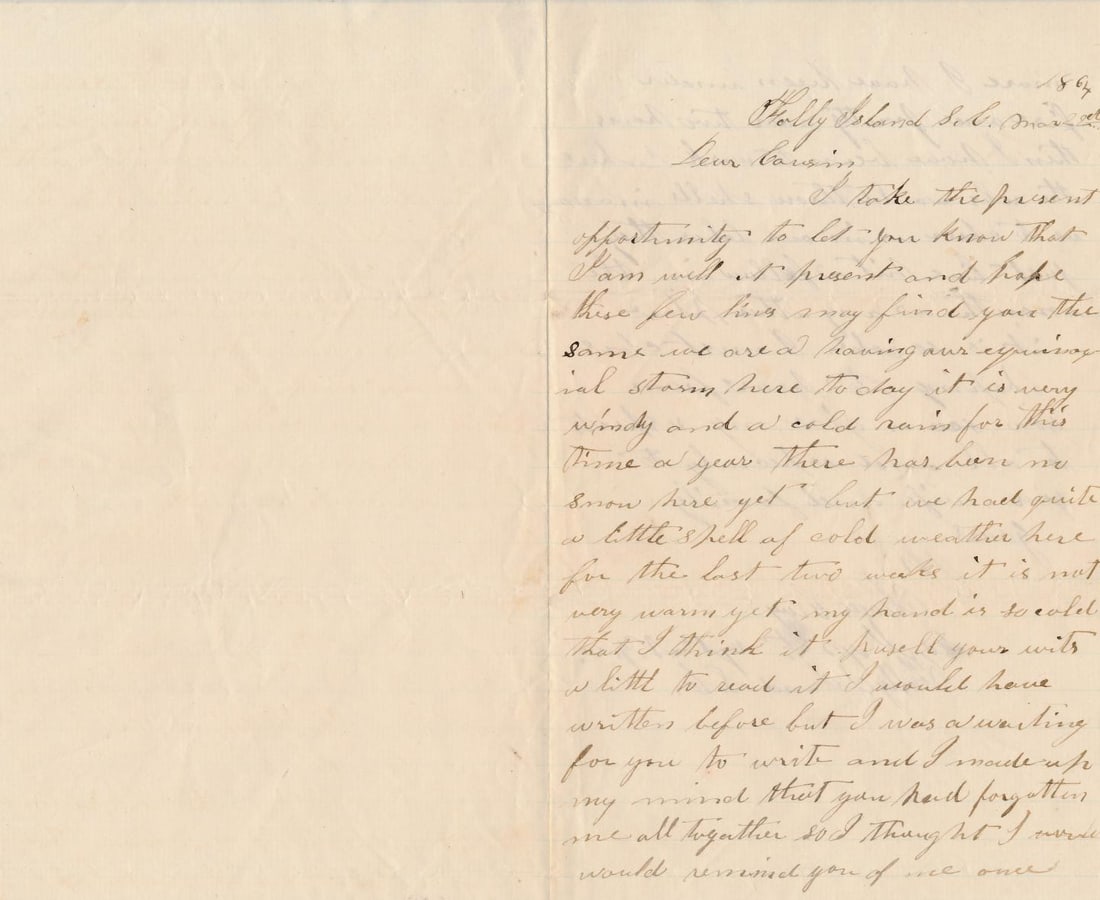 1864
Folly Island S.C. Mar
Dear Cousin
I take the present
opportunity to let you know that
I am well at present and hope
these few lines may find you the
same we are a having our equinox
ial storm here to day it is very
windy and a cold rain for this
time a year there has been no
snow here yet but we had quite
a little spell of cold weather here
for the last two weeks it is not
very warm yet my hand is so cold
that I think it pusell your wits
a littl to read it I would have
written before but I was a waiting
for you to write and I made up
my mind that you had forgotten
me all together so I thought I
would remind you of me once